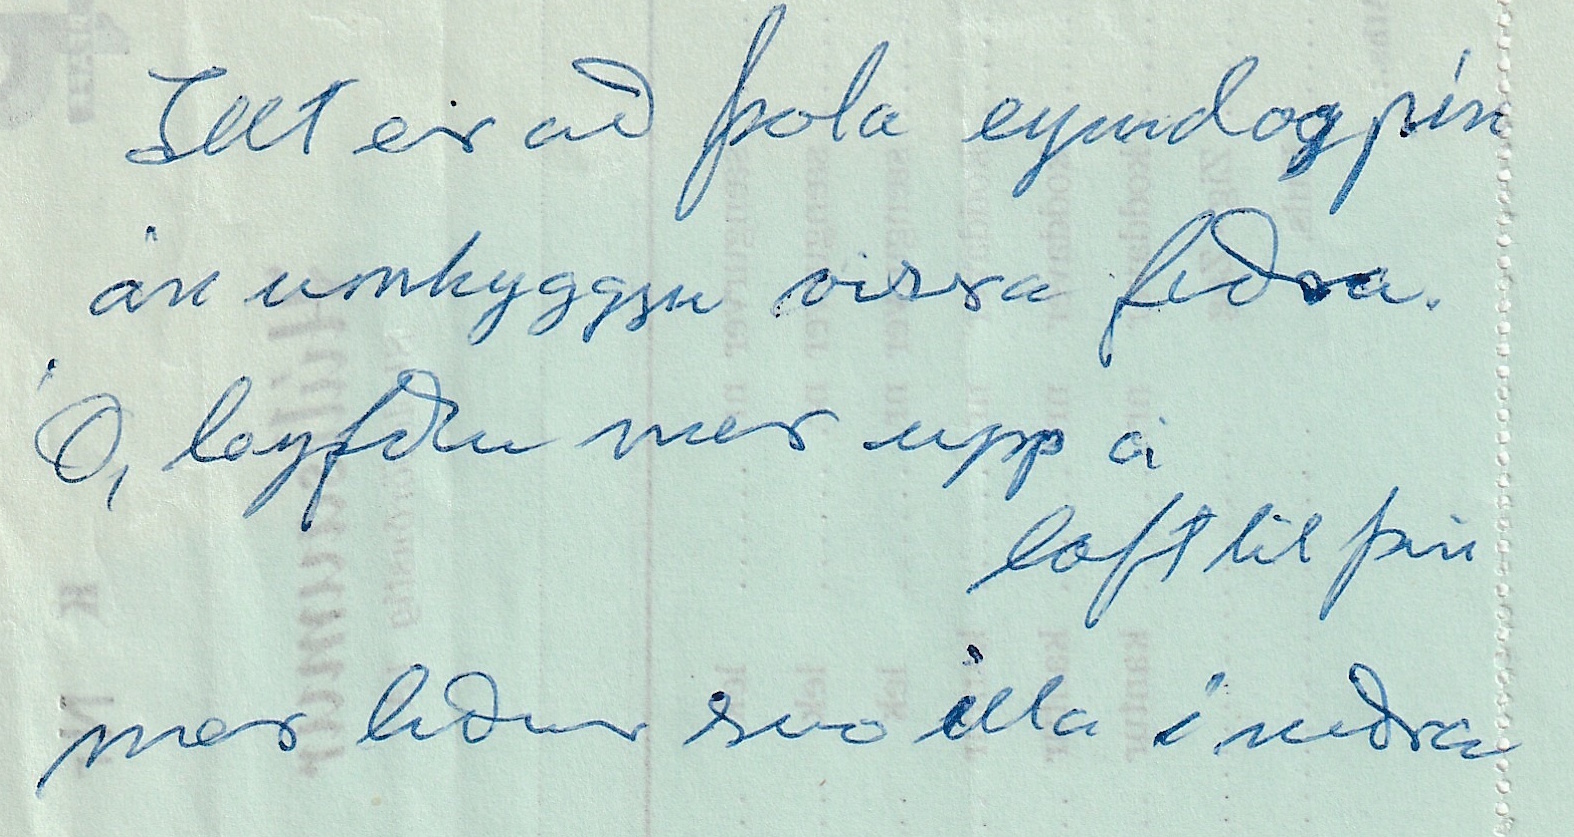 Illt er að þola eymd og pín
án umhyggju vissra feðra.
Ó, leyfðu mer upp á
loft til þín
mer liður svo illa í neðra